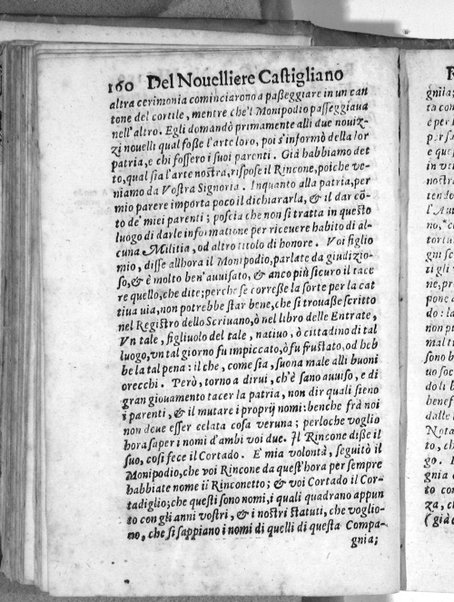 160 Del Nouelliere Castigliano
altra cerimonia cominciarono a paßeggiare in un can
tone del cortile, mentre che'l Monipodio passeggiaua
nell'altro. Egli domandò primamente alli due nouiz-
zi nouelli qual fosse l'arte loro, poi s'informò della lor
patria, e chi fossero i suoi parenti. Già habbiamo det
to, qual sia l'arte nostra, rispose il Rincone, poiche ve-
niamo da Vostra Signoria. Inquanto alla patria, per
mio parere importa poco il dichiararla, & il dar cō-
to de' miei parenti; poscia che non si tratta in questo
luogo di darle informatione per riceuere habito di al-
cuna Militia, od altro titolo di honore. Voi figlio
mio, disse allhora il Monipodio, parlate da giudizio-
so, & è molto ben' auuisato, & anco più sicuro il tace
re quello, che dite; perche se correße la sorte per la cat
tiua uia, non potrebbe star bene, che si trouaße scritto
nel Registro dello Scriuano, ò nel libro delle Entrate,
Vn tale, figliuolo del tale, natiuo, ò cittadino di tal
luogo, vn tal giorno fu impiccato, ò fu frustato, od heb
be la tal pena: il che, come sia, suona male alli buoni
orecchi. Però, torno a dirui, ch'è sano auuiso, e di
gran giouamento tacer la patria, non dir quali sieno
i parenti, & il mutare i proprij nomi: benche frà noi
non deue esser celata cosa veruna; perloche voglio
hora saper i nomi d'ambi voi due. Il Rincone disse il
suo, cosi fece il Cortado. E' mia volontà, seguitò il
Monipodio, che voi Rincone da quest'hora per sempre
habbiate nome il Rinconetto; & voi Cortado il Cor-
tadiglio; che questi sono nomi, i quali quadrano appun
to con gli anni vostri, & i nostri statuti, che voglio-
no, che si sappiano i nomi di quelli di questa Compa-
gnia;